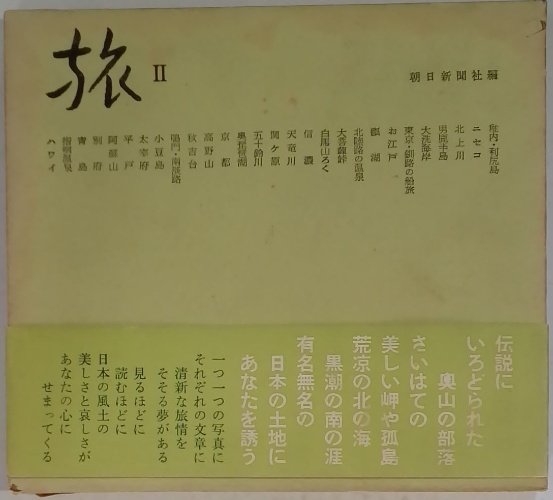 旅 II
朝日新聞社編
稚内・利尻島
ニセコ
北上川
男鹿半島
大洗海岸
東京・釧路の船旅
お江戸
湖
北陸路の温泉
大菩薩峠
白馬山ろく
信濃
天竜川
関ケ原
五十鈴川
奥琵琶湖
京都
高野山
秋吉台
鳴門・南展路
小豆島
太宰府
平戸
阿蘇山
別府
青島
指宿温泉
ハワイ
伝説に
いろどられた
奥山の部落
さいはての
美しい岬や孤島
荒凉の北の海
黒潮の南の涯
有名無名の
日本の土地に
あなたを誘う
一つ一つの写真に
それぞれの文章に
清新な旅情を
そそる夢がある
見るほどに
読むほどに
日本の風土の
美しさと哀しさが
あなたの心に
せまってくる